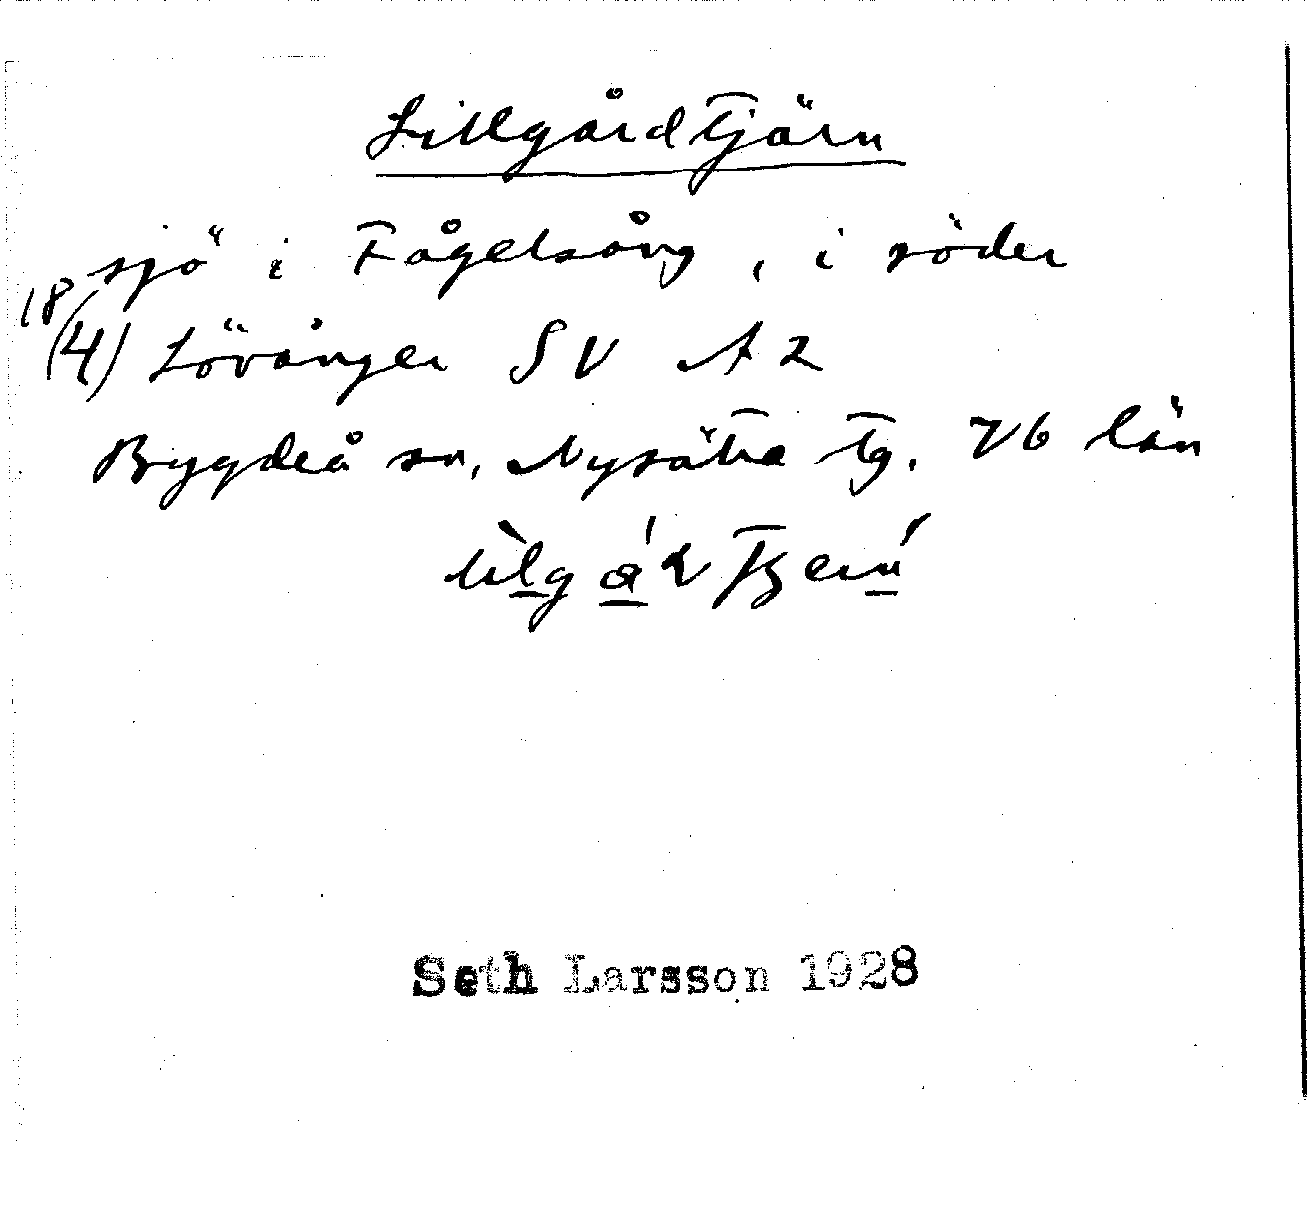 Lillgårdtjärn
sjö i Fågelsång, i söder
18/(4) Lövånger SV A2
Bygdeå sn, Nysätra tg. Vb län
Seth Larsson 1928